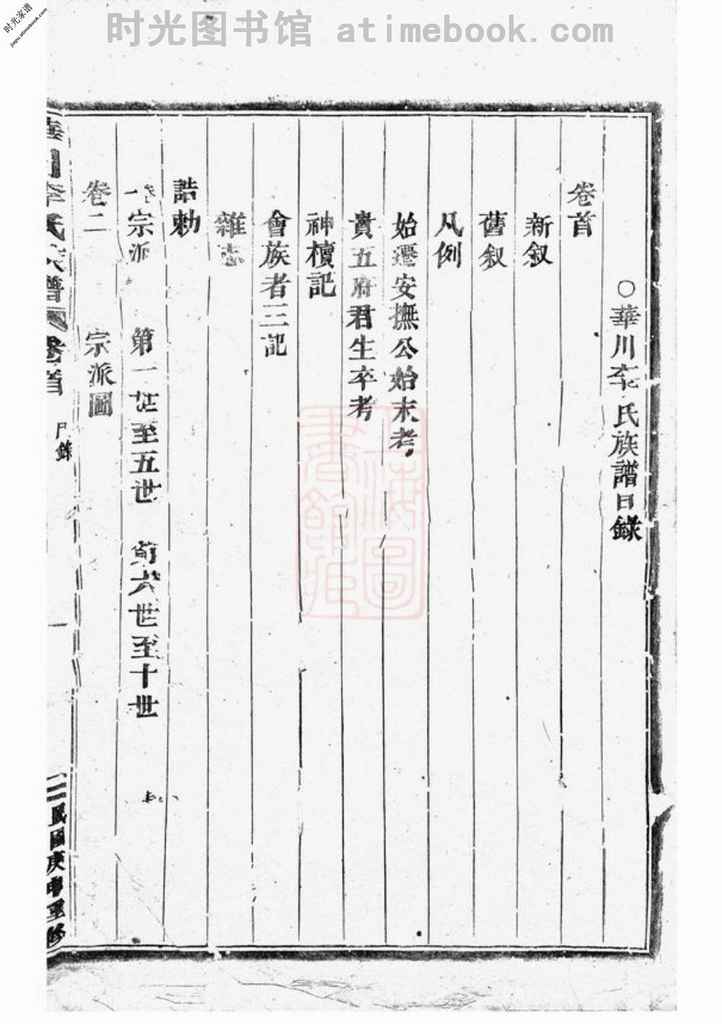 时光家谱
jiapu.atimebook.com
时光图书馆 atimebook.com
○華川李氏族譜目錄
卷首
新叙
舊叙
凡例
始遷安撫公始末考
貴五府君生卒考
神櫝記
會族者三記
雜志
誥勅
宗派 第一世至五世 第六世至十世
卷二 宗派圖
華川李氏族譜 卷首 目錄 一 民國庚申重修